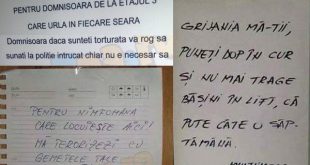 PENTRU DOMNISOARA DE LA ETAJUL 3
CARE URLA IN FIECARE SEARA
Domnisoara daca sunteti torturata va rog sa
sunati la politie intrucat chiar nu e necesar sa
PENTRU NIMFOMANA
CARE LOCUIEȘTE AICI!
MĂ TERORIZEZI CU
GEMETELE TALE
GRIJANIA MĂ-TII,
PUNEȚI DOP ÎN CUR
ȘI NU MAI TRAGE
BĂȘINI ÎN LIFT, CĂ
PUTE CÂTE O SĂP-
TĂMÂLIA.